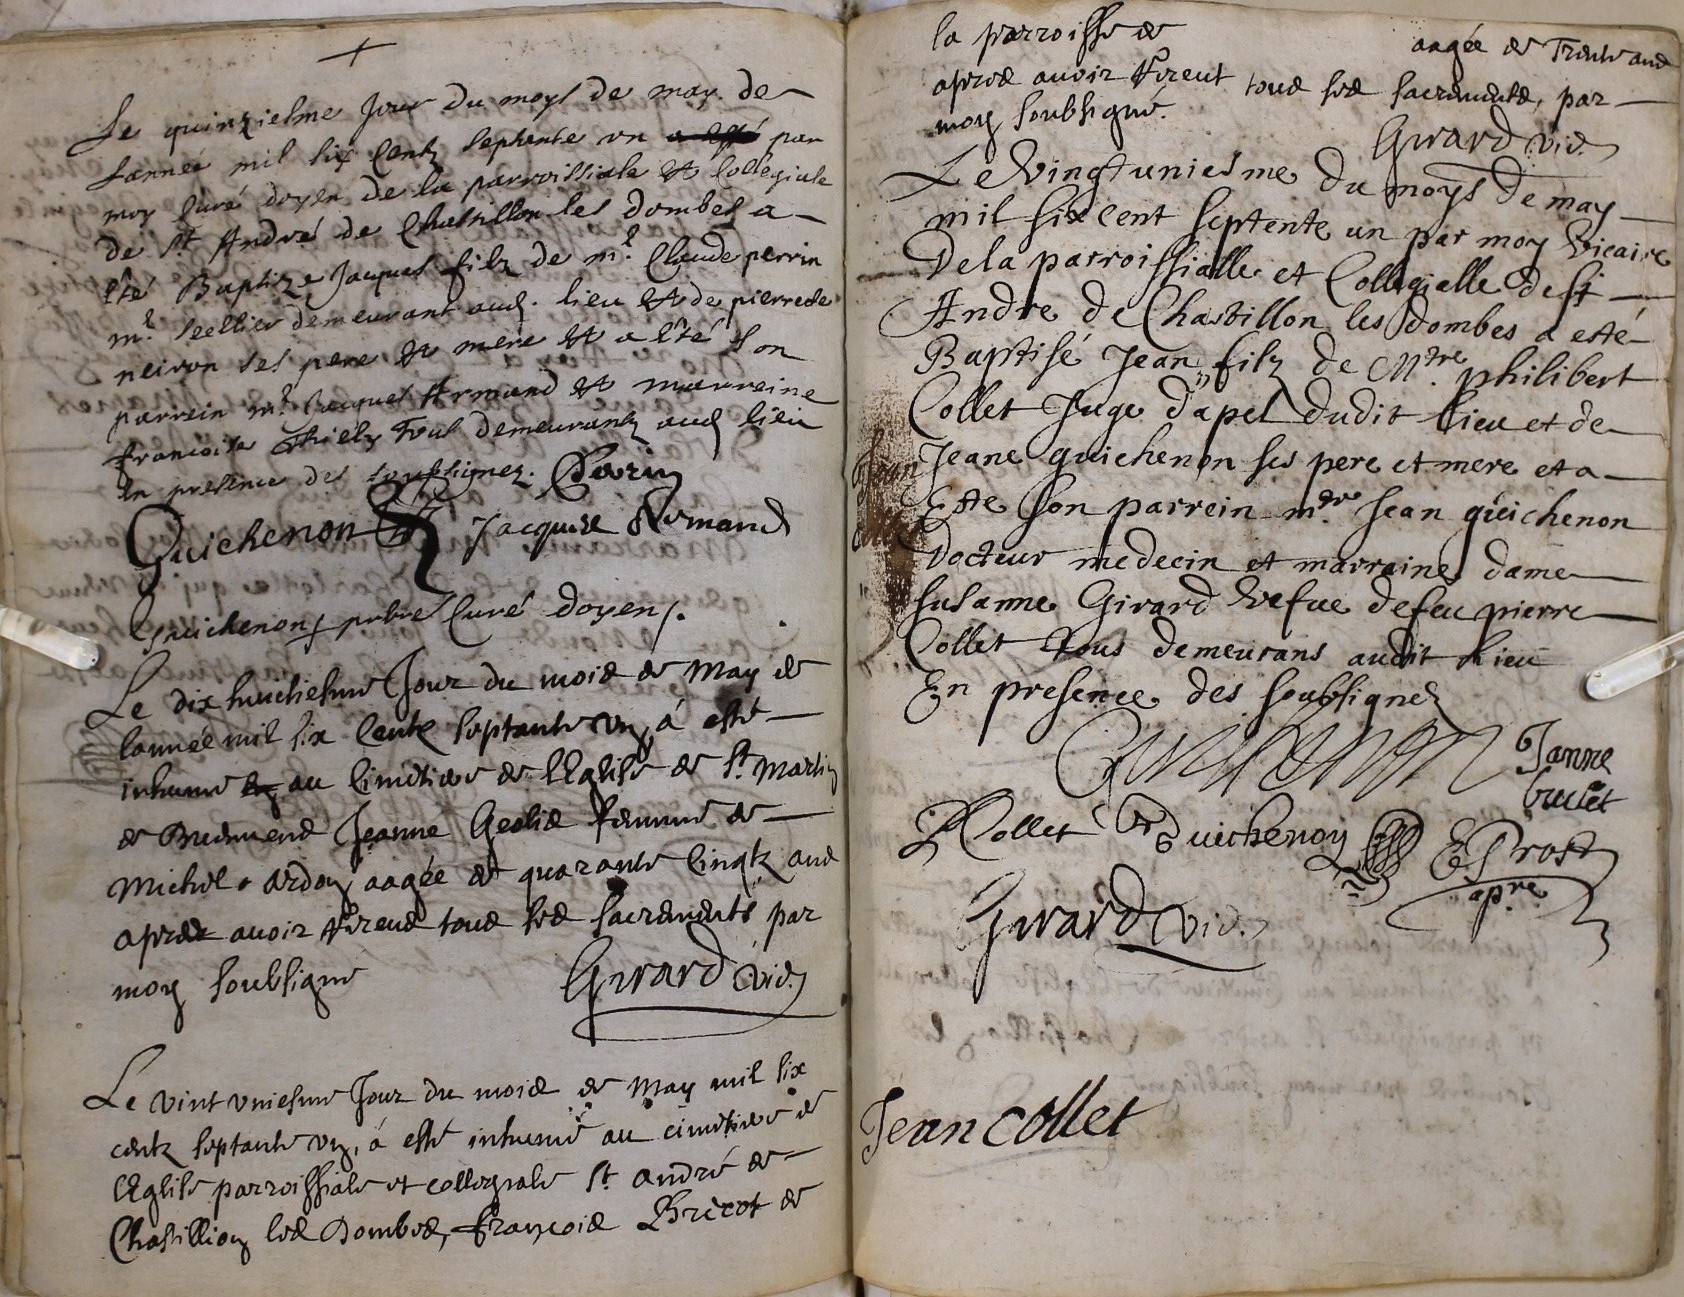 Le quinziesme Jour du moys de may de
Lannée mil six Centz septente un par
moy Curé doyen de la parroissiale et Collegiale
de St André de Chastillon les dombes a
esté Baptize Jacques filz de mr. Claude perrin
mr. sellier demeurant aud. lieu et de pierrete
neiron ses pere et mere et a esté son
parrein mr. Jacques Armand et marreine
francoise Thiely tous demeurantz aud lieu
en presence des soussignez. Perrin
Guichenon Jacques Armand
Guichenon pbre Curé doyen.
Le dix huictiesme Jour du mois de May de
lannée mil six Centz septante un, á esté
inhumé au Cimetiere de lEglise de St Martin
de Jeanne femme de
Michel ardoy aagée de quarante Cinqtz ans
apres avoir reveus tous ses sacrements par
moy soubsigné Girard vic.
Le vint uniesme Jour du mois de May mil six
centz septante un, á esté inhumé au cimetiere de
lEglise parroissiale et collegiale St André de
Chastillion les Dombes, françois Bricot de
la parroisse de aagée de Trente ans
apres avoir receut tous ses sacrements, par
moy soubsigné.
Girard vic.
Le Vingtuniesme du moys de may
mil six cent septente un par moy Vicaire
De la parroissialle et Collegialle de St
Andre de Chastillon les Dombes a esté
Baptisé Jean filz de Mtre philibert
Collet Juge Dapel dudit lieu et de
Jean
Collet
Jeane guichenon ses pere et mere et a
Este son parrein mtre Jean guichenon
Docteur medecin et marraine dame
Susanne Girard vefue de feu pierre
Collet tous demeurans audit lieu
En presence des soubsignez
Guichenon Janne
P Collet Guichenon E Prost
apre
Girard vic.
Jean collet